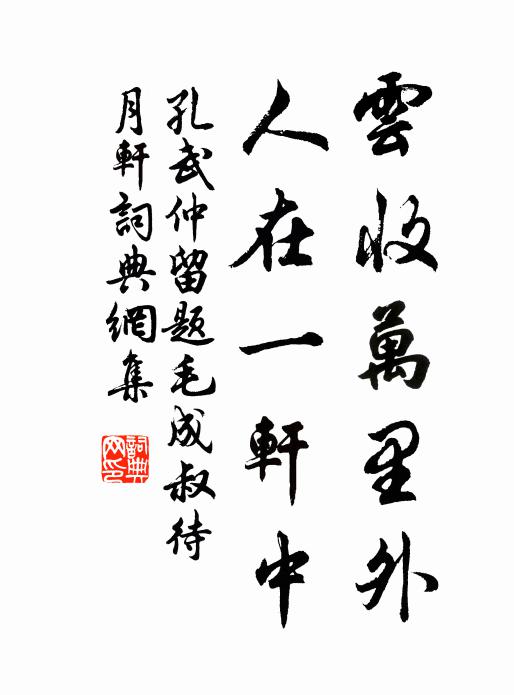 雲收萬里外
人在一軒中
孔武仲留題毛成叔待
月軒詞典網集
詞典網印